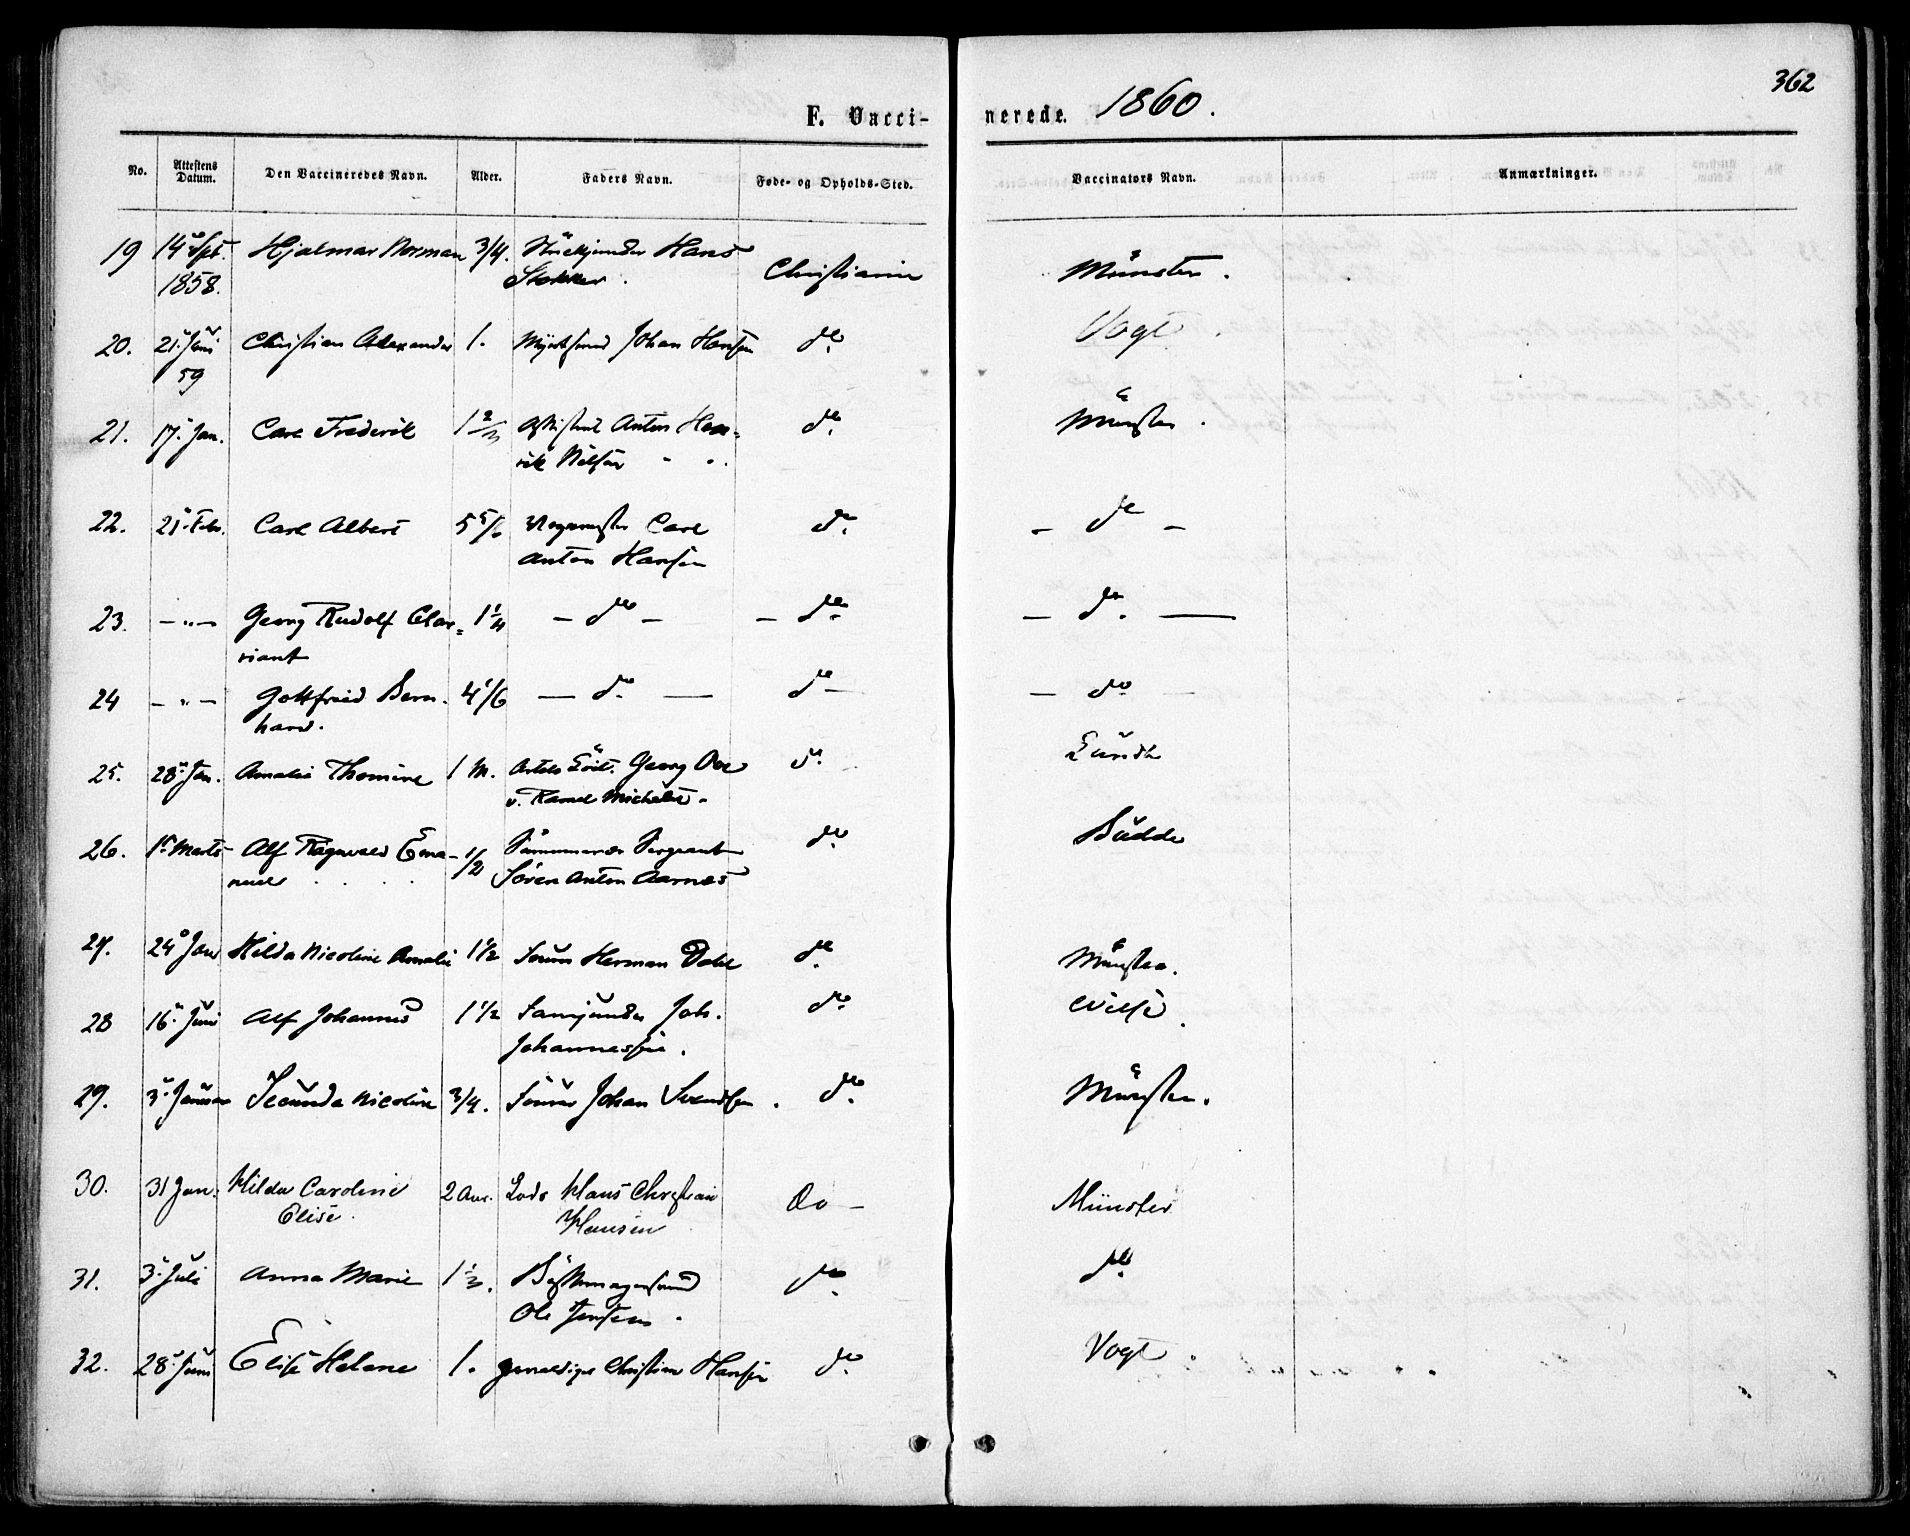 362
F. Vacci- nerede. 1860.
No. Attestens Datum. Den Vaccineredes Navn. Alder. Faders Navn. Føde- og Opholds-Sted. Vaccinators Navn. Anmærkninger.
19 14 Spt. Hjalmar Norman 3/4. Hans
1858. Christiania Münster.
20. 21. Juni Christian Alexander 1. Johan Hansen do. Vogt
59
21. 17. Jan. Carl Frederik 1 2/3 Anton Hen= do. Münster.
rik Nilsen
22. 21. Febr. Carl Albert 5 5/6 Carl do. — do —
Anton Hansen
23. — „ — Georg Rudolf Clar= 1 1/4 — do — — do. — do. —
riant
24 — „ — Gottfried Bern- 4 1/6 — do. — do — — do. —
hard.
25. 28. Jan. Amalie Thomine 1 M. Georg do. Lundh
v. Michelet.
26. 1. Marts Alf Ragnvald Ema- 1/2 Sergeant do. Budde
nuel Søren Anton Aarnes
27. 24 Jan Hilda Nicoline Amalie 1 1/2 Herman Dahl do. Münster.
28 16. Juni Alf Johannes 1 1/2 Joh. do. Wilse.
Johannessen.
29. 3. Januar Secunda Nicoline 3/4. Johan Svendsen. do. Münster.
30. 31 Jan. Hilda Caroline 2 Aar. Lods Hans Christian Do — Münster
Elise. Hansen
31. 3. Juli Anna Marie 1 1/3. Bøssemagersvend do. do.
Ole Jensen.
32. 28. Juni Elise Helene 1. Christian Hansen do. Vogt